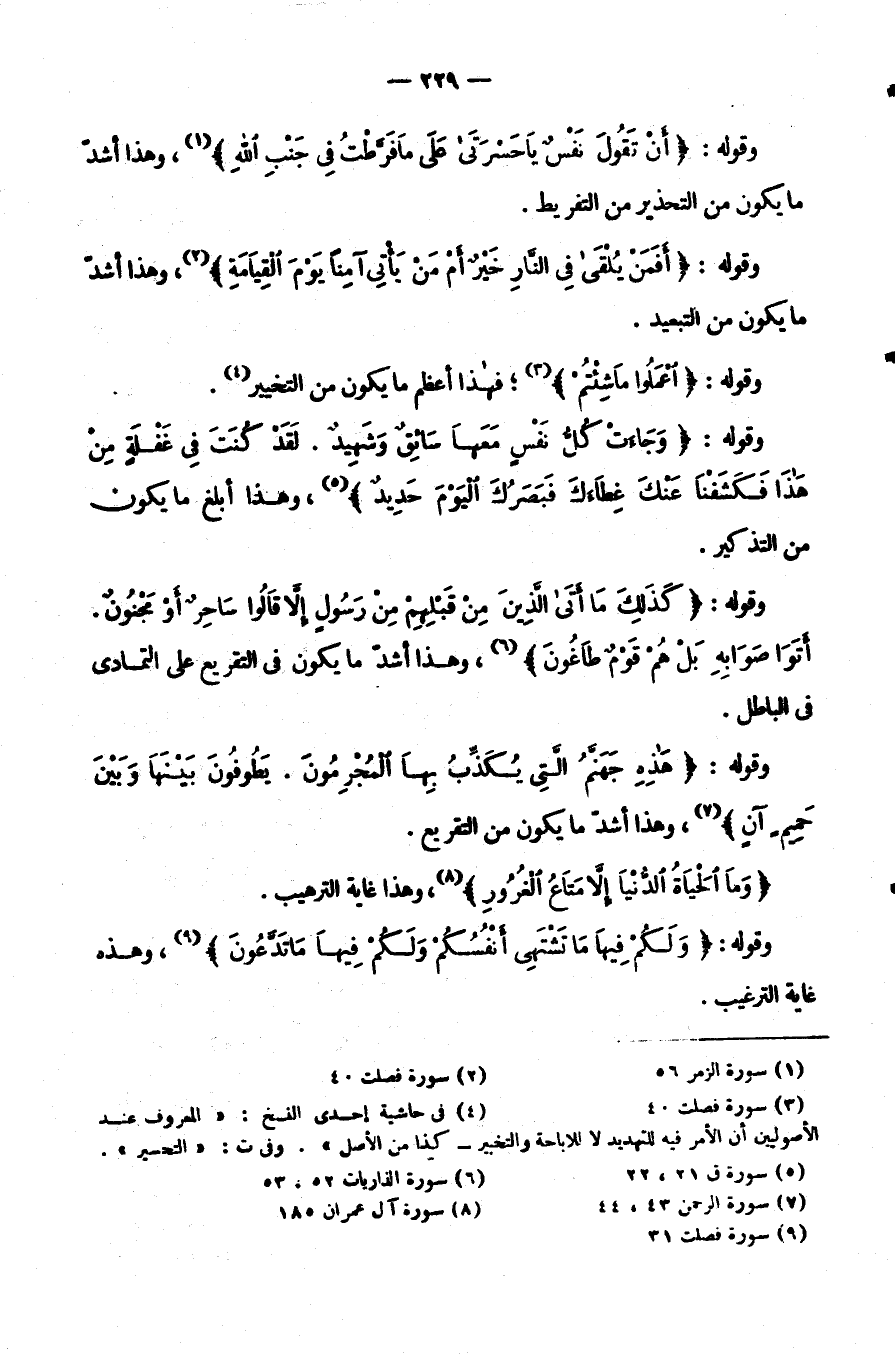 — ٢٢٩ —
وقوله : ﴿ أَنْ تَقُولَ نَفْسٌ يَاحَسْرَتَىٰ عَلَى مَافَرَّطْتُ فِى جَنْبِ ٱللهِ ﴾(١) ، وهذا أشدّ
ما يكون من التحذير من التفريط .
وقوله : ﴿ أَفَمَنْ يُلْقَىٰ فِى النَّارِ خَيْرٌ أَمْ مَنْ يَأْتِى آمِنًا يَوْمَ ٱلْقِيَامَةِ ﴾(٢) ، وهذا أشدّ
ما يكون من التبعيد .
وقوله : ﴿ ٱعْمَلُوا مَاشِئْتُمْ ﴾(٣) ؛ فهٰذا أعظم ما يكون من التخيير(٤) .
وقوله : ﴿ وَجَاءتْ كُلُّ نَفْسٍ مَعَهَا سَائِقٌ وَشَهِيدٌ . لَقَدْ كُنتَ فِى غَفْلَةٍ مِنْ
هَٰذَا فَكَشَفْنَا عَنْكَ غِطَاءكَ فَبَصَرُكَ ٱلْيَوْمَ حَدِيدٌ ﴾(٥) ، وهذا أبلغ ما يكون
من التذكير .
وقوله : ﴿ كَذَلِكَ مَا أَتَىٰ الَّذِينَ مِنْ قَبْلِهِمْ مِنْ رَسُولٍ إِلَّا قَالُوا سَاحِرٌ أَوْ مَجْنُونٌ .
أَتَوَا صَوْا بِهِ بَلْ هُمْ قَوْمٌ طَاغُونَ ﴾(٦) ، وهذا أشدّ ما يكون فى التقريع على التمادى
فى الباطل .
وقوله : ﴿ هَٰذِهِ جَهَنَّمُ الَّتِى يُكَذِّبُ بِهَا ٱلْمُجْرِمُونَ . يَطُوفُونَ بَيْنَهَا وَبَيْنَ
حَمِيمٍ آنٍ ﴾(٧) ، وهذا أشدّ ما يكون من التقريع .
﴿ وَمَا ٱلْحَيَاةُ ٱلدُّنْيَا إِلَّا مَتَاعُ ٱلْغُرُورِ ﴾(٨)، وهذا غاية الترهيب .
وقوله : ﴿ وَلَكُمْ فِيهَا مَا تَشْتَهِى أَنْفُسُكُمْ وَلَكُمْ فِيهَا مَاتَدَّعُونَ ﴾(٩) ، وهذه
غاية الترغيب .
(١) سورة الزمر ٥٦ (٢) سورة فصلت ٤٠
(٣) سورة فصلت ٤٠ (٤) فى حاشية إحدى النسخ : « المعروف عند
الأصوليين أن الأمر فيه للتهديد لا للاباحة والتخيير – كذا من الأصل » . وفى ت : « التحسير » .
(٥) سورة ق ٢١ ، ٢٢ (٦) سورة الذاريات ٥٢ ، ٥٣
(٧) سورة الرحمن ٤٣ ، ٤٤ (٨) سورة آل عمران ١٨٥
(٩) سورة فصلت ٣١